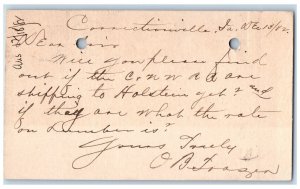 Correctionville, Ia, Dec 15/82
Dear Sirs
Will you please find
out if the C & N W are
shipping to Holstein yet & and
if they are what the rate
on Lumber is?
Yours Truly
C B Frazer
Ans 12/18/82